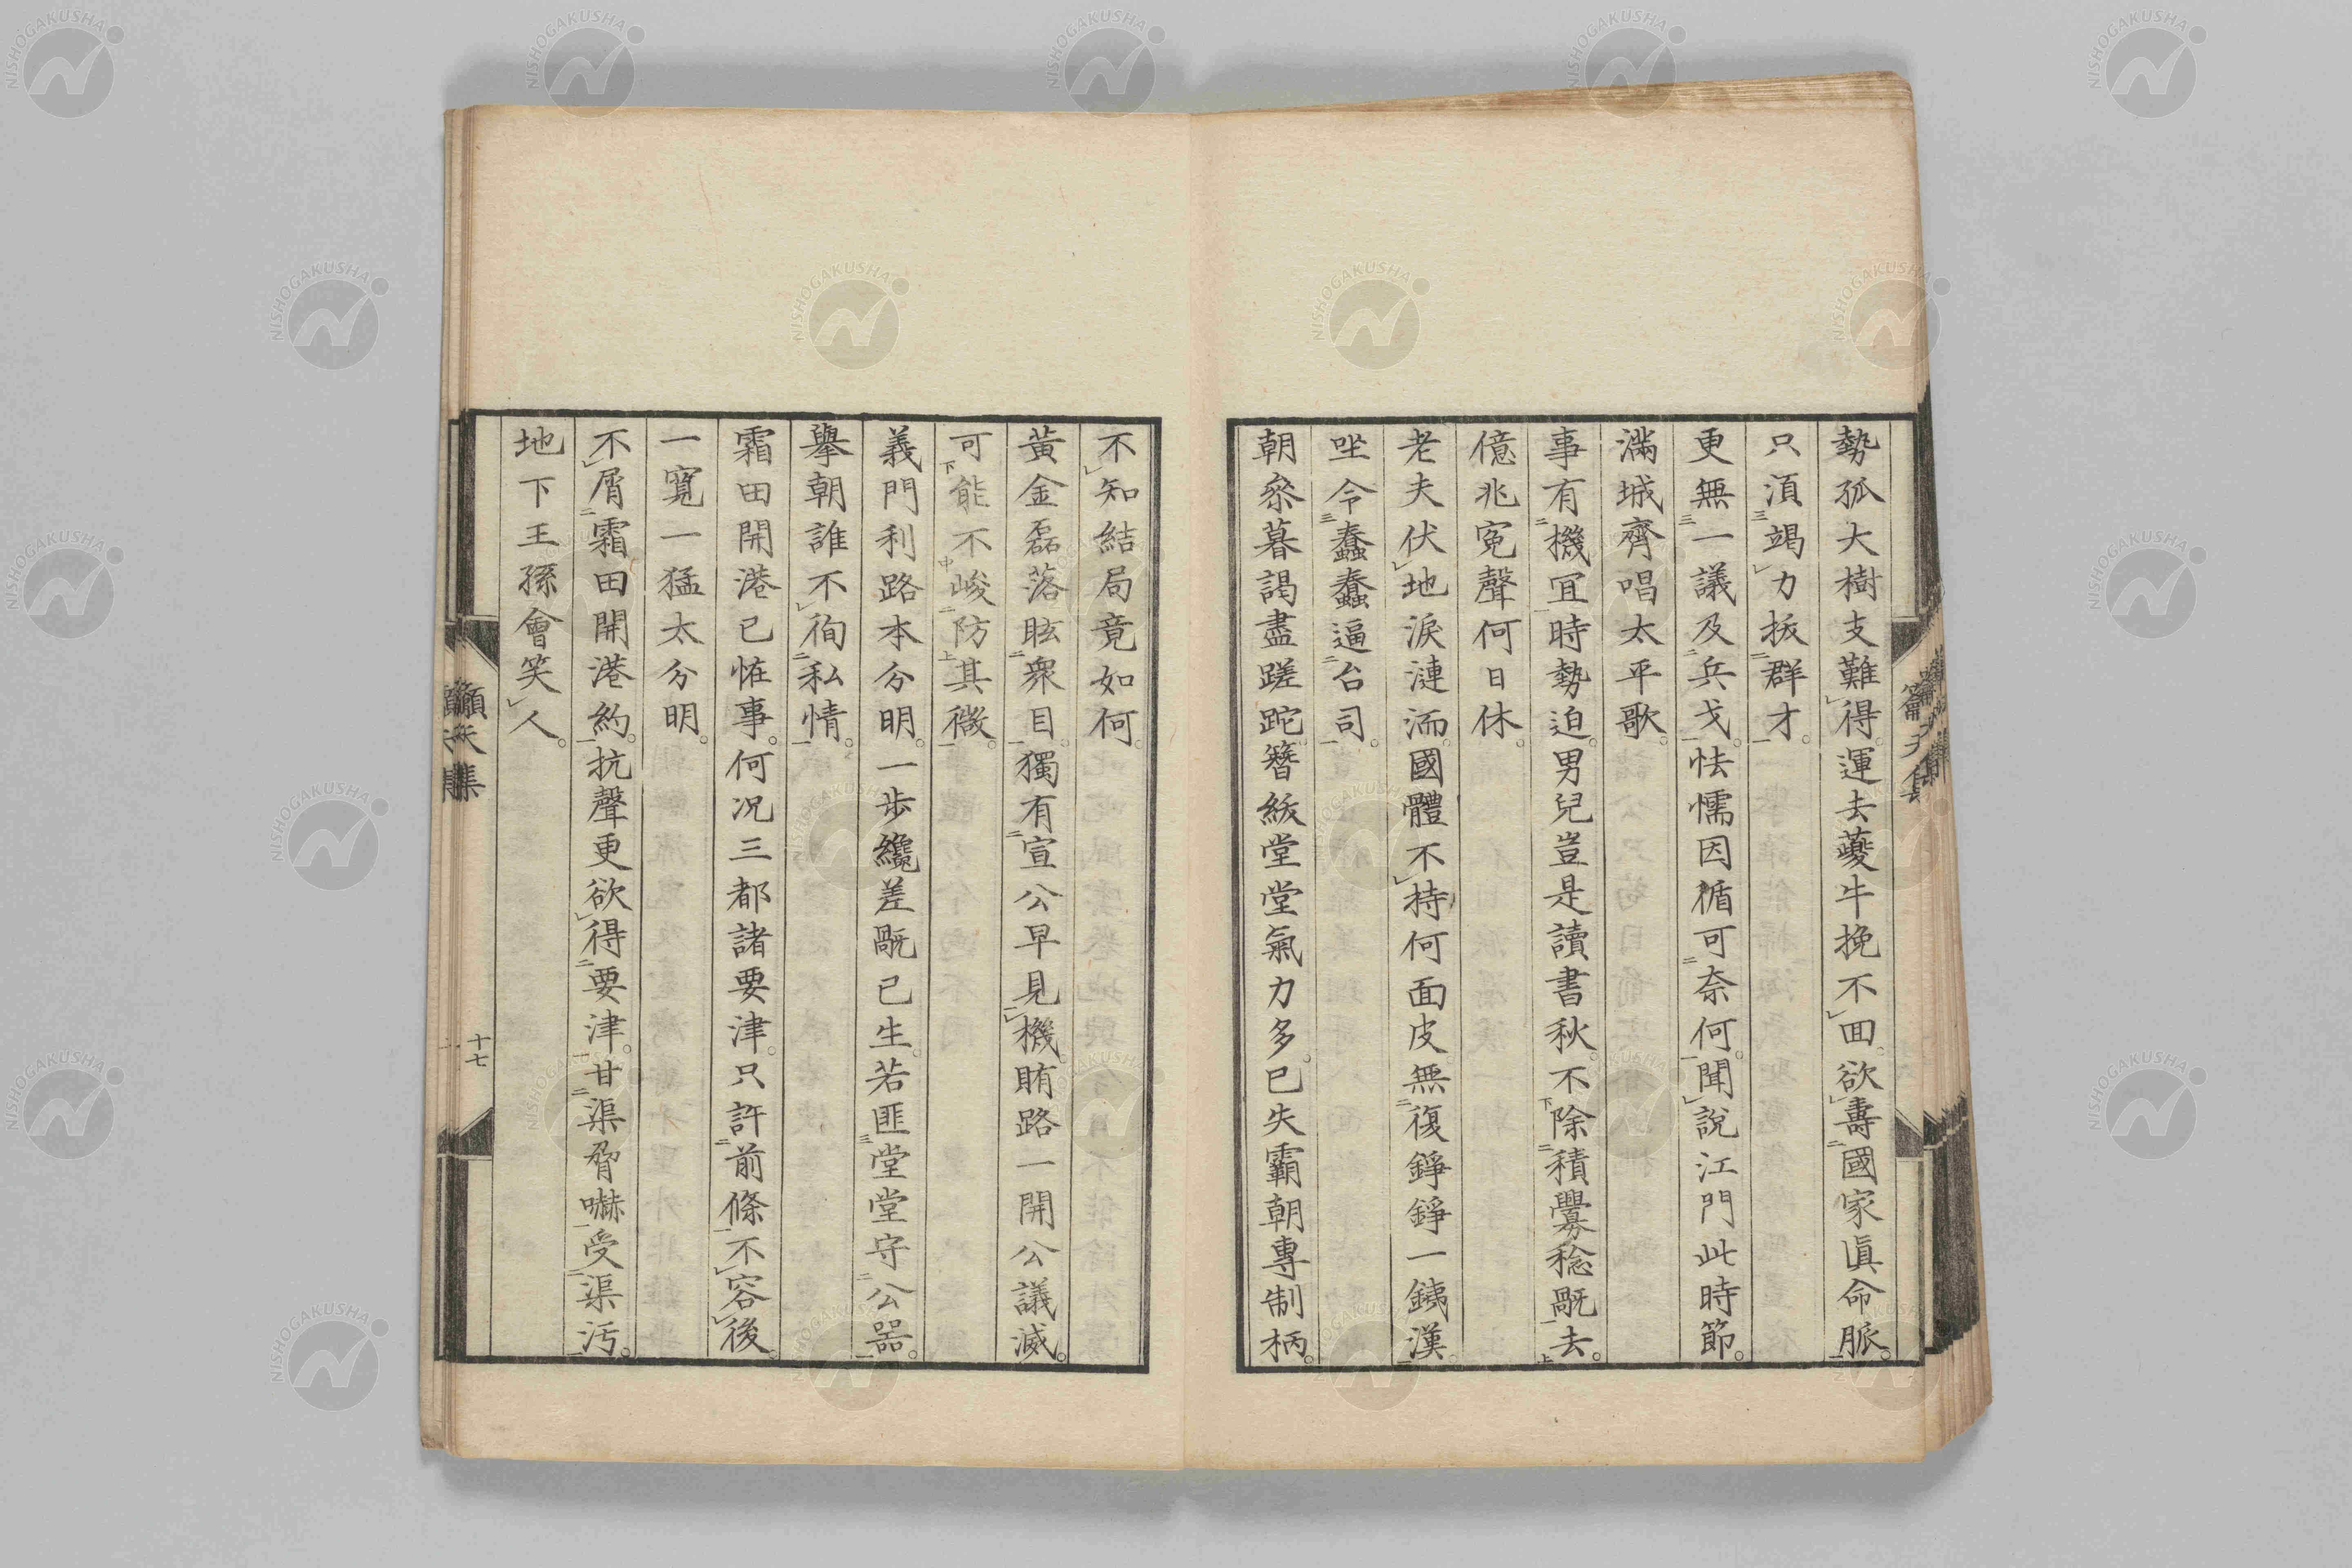 勢孤大樹支難得。運去虁牛挽不回。欲壽國家眞命脈。
只須竭力拔群才。
更無一議及兵戈。怯懦因循可奈何。聞說江門此時節。
滿城齊唱太平歌。
事有機宜時勢迫。男兒豈是讀書秋。不除積釁稔戬去。
億兆冤聲何日休。
老夫伏地淚漣洏。國體不持何面皮。無復錚錚一銕漢。
坐令蠢蠢逼台司。
朝叅暮謁盡蹉跎。簪紱堂堂氣力多。已失霸朝專制柄。
不知結局竟如何。
黃金磊落眩衆目。獨有宣公早見機。賄路一開公議滅。
可能不峻防其微。
義門利路本分明。一步纔差戬已生。若匪堂堂守公器。
擧朝誰不徇私情。
霜田開港已恠事。何况三都諸要津。只許前條不容後。
一寬一猛太分明。
不屑霜田開港約。抗聲更欲得要津。甘渠脅嚇受渠汚。
地下王孫會笑人。
籲天集
十七
NISHOGAKUSHA